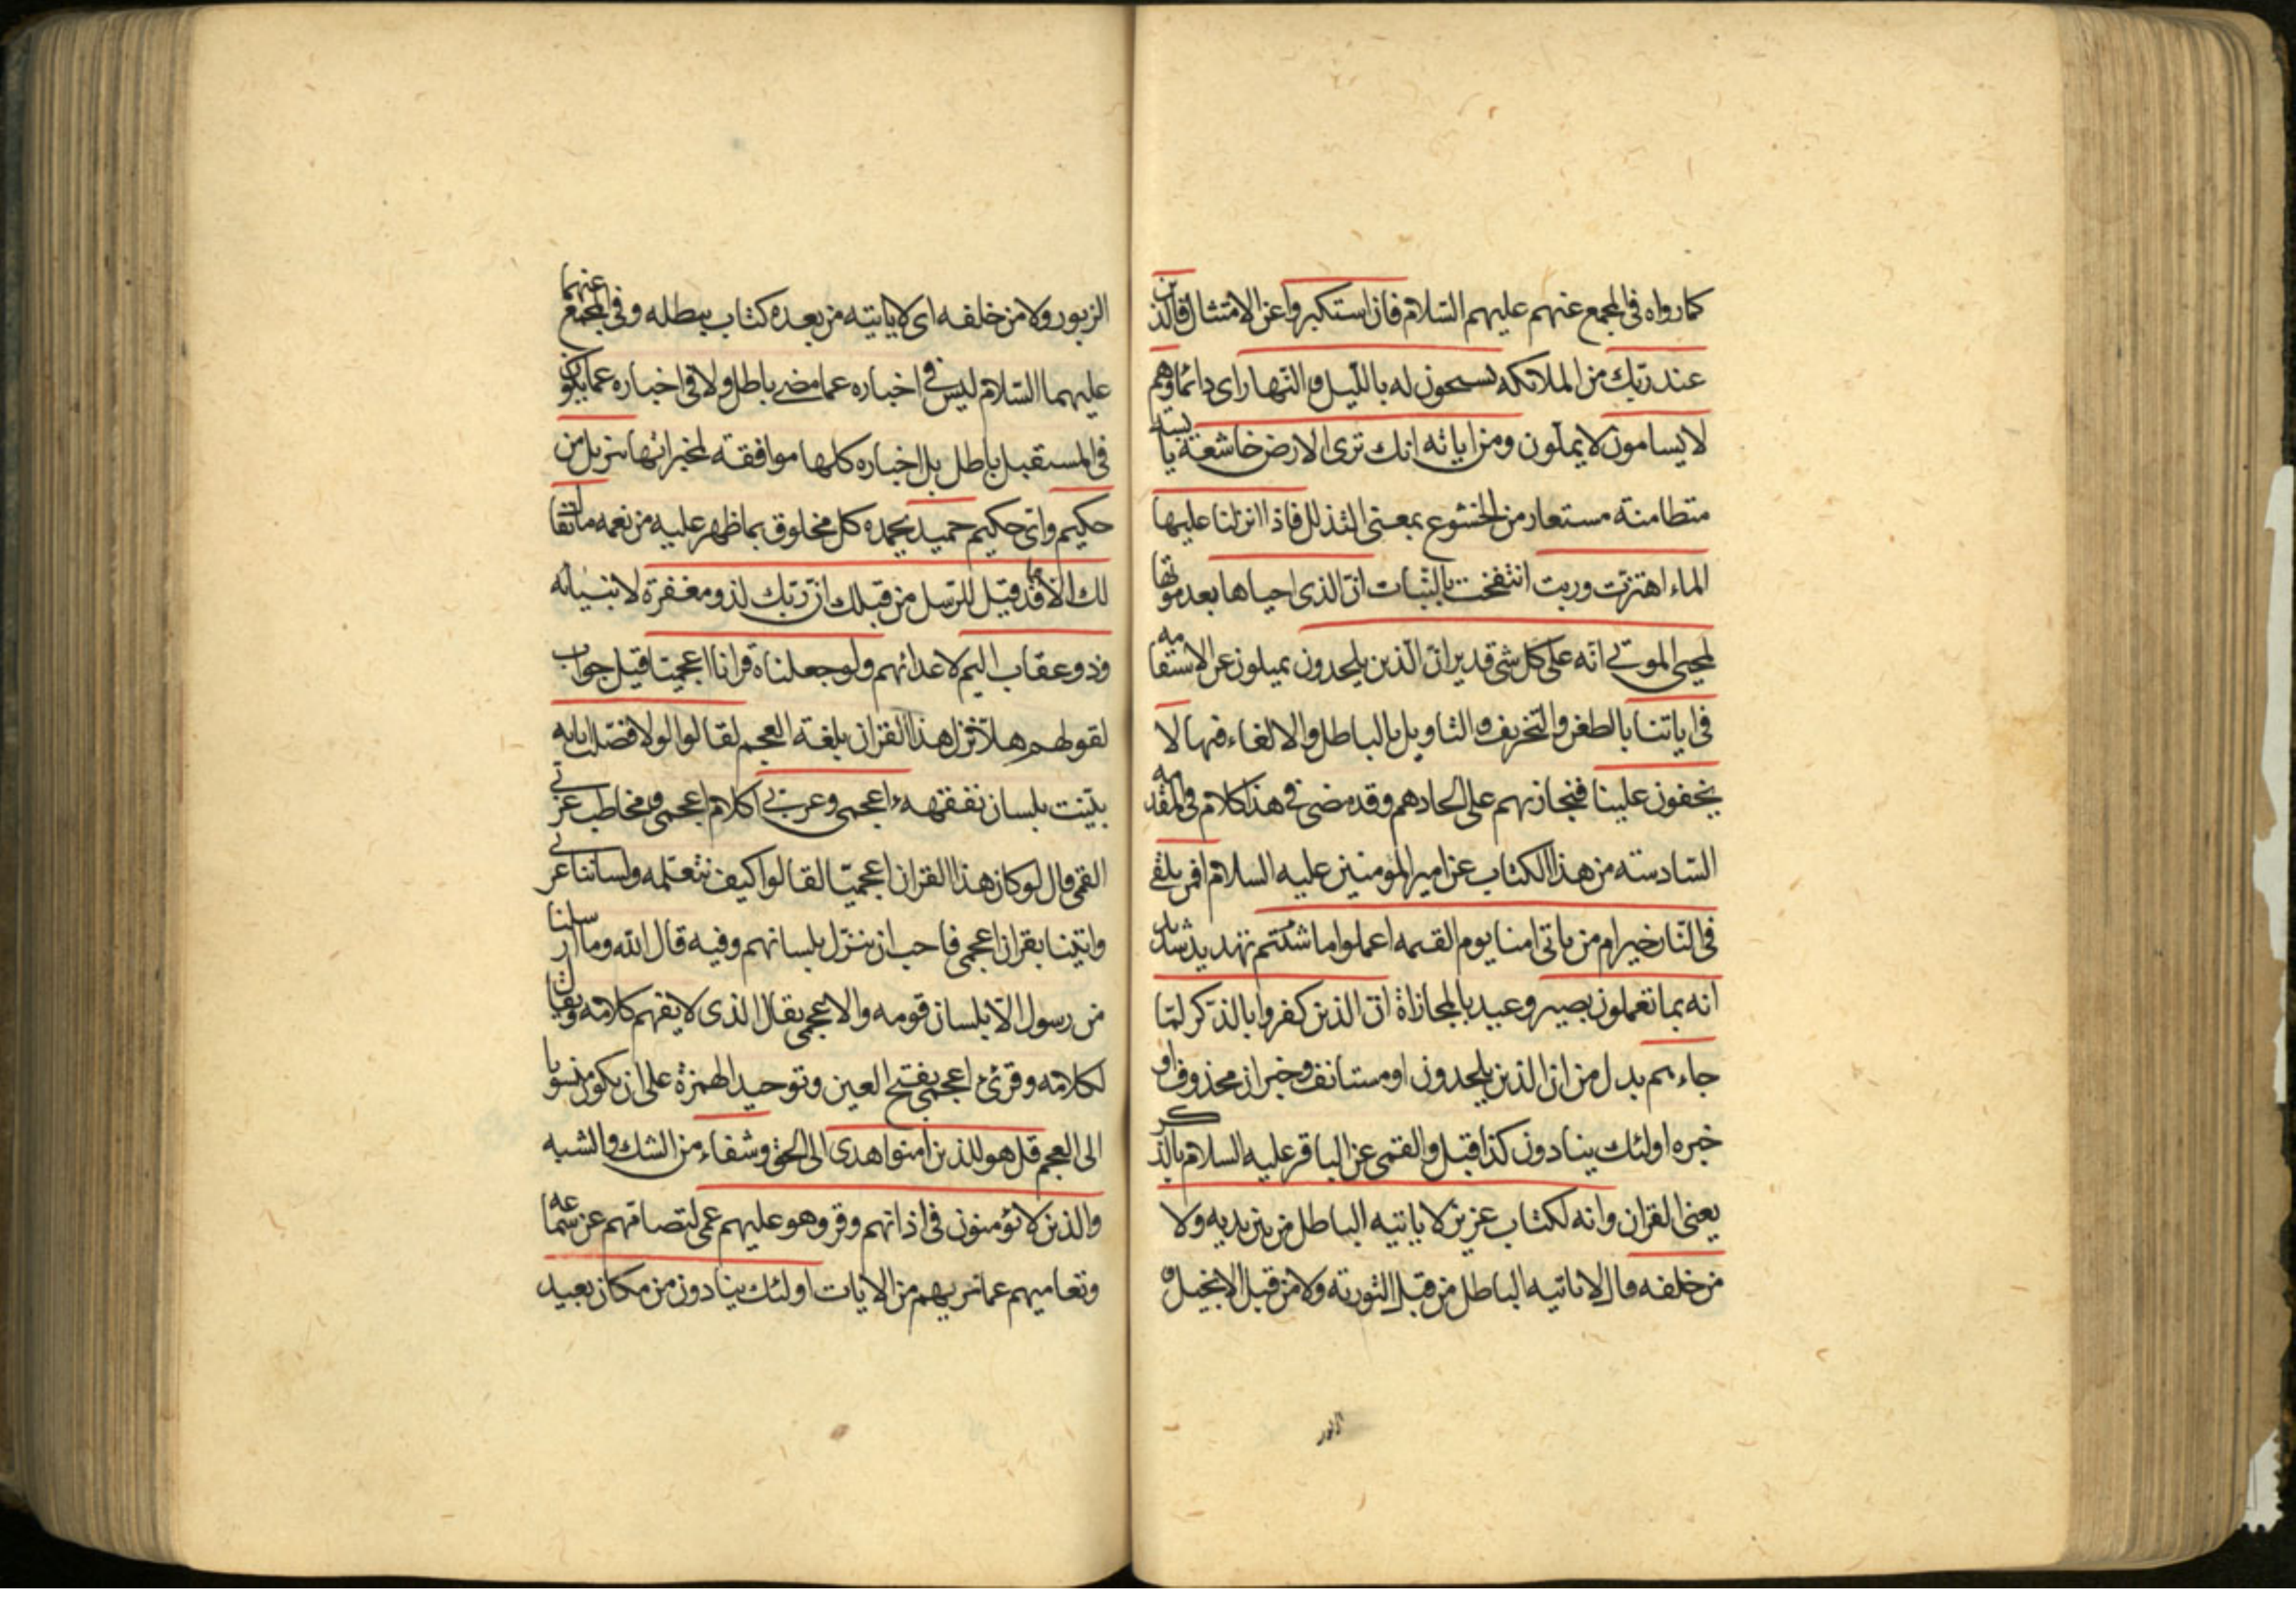 كما رواه فى المجمع عنهم عليهم السّلام فان استكبروا عن الامتثال فالذين
عند ربّك من الملائكه يسبحون له بالليل و النّهار اى دائما وهم
لا يسامون لا يملّون ومن اياته انك ترى الارض خاشعة يابسة
متطامنة مستعار من الخشوع بمعنى التذلل فاذا انزلنا عليها
الماء اهتزّت وربت انتفخت بالنّبات انّ الذى احياها بعد موتها
لمحيى الموتى انّه على كل شى قدير انّ الّذين يلحدون يميلون عن الاستقامه
فى اياتنا بالطعن والتحريف و التاويل بالباطل والالغاء فيها لا
يخفون علينا فنجازيهم على الحادهم وقد مضى فى هذا كلام فى المقدمه
السّادسته من هذا الكتاب عن امير المومنين عليه السلام افمن يلقى
فى النّار خير ام من ياتى امنا يوم القيمه اعملوا ما شئتم تهديد شديد
انه بما تعملون بصير وعيد بالمجازاة انّ الذين كفروا بالذّكر لمّا
جاءهم بدل من ان الذين يلحدون او مستانف وخبر ان محذوف او
خبره اولئك ينادون كذا قيل والقمى عن الباقر عليه السلام بالذكر
يعنى القران وانه لكتاب عزيز لا ياتيه الباطل من بين يديه ولا
من خلفه قال لا ياتيه الباطل من قبل التورية ولا من قبل الانجيل و
الزبور
الزبور ولا من خلفه اى لا ياتيه من بعده كتاب يبطله وفى المجمع عنهما
عليهما السّلام ليس فى اخباره عما مضى باطل ولا فى اخباره عما يكون
فى المستقبل باطل بل اخباره كلها موافقة لمخبراتها تنزيل من
حكيم واىّ حكيم حميد يحمده كل مخلوق بما ظهر عليه من نعمه ما يقال
لك الا ما قد قيل للرّسل من قبلك انّ ربّك لذو مغفرة لانبيائه
وذو عقاب اليم لاعدائهم ولو جعلناه قرانا اعجميّا قيل جواب
لقولهم هلّا نزل هذا القران بلغة العجم لقالوا لولا فصّلت اياته
بيّنت بلسان نفقهه ءاعجمى وعربى اكلام اعجمى و مخاطب عربى
القمى قال لو كان هذا القران اعجميّا لقالوا كيف نتعلّمه ولساننا عربى
واتيتنا بقران اعجمى فاحب ان ينزّل بلسانهم وفيه قال الله وما ارسلنا
من رسول الّا بلسان قومه والاعجمى يقال الذى لا يفهم كلامه ويقال
لكلامه وقرئ اعجمى بفتح العين وتوحيد الهمزة على ان يكون منسوبا
الى العجم قل هو للذين امنوا هدى الى الحق وشفاء من الشك والشبه
والذين لا يؤمنون فى اذانهم وقر وهو عليهم عمى لتصامّهم عن سماعه
وتعاميهم عما يريهم من الايات اولئك ينادون من مكان بعيد